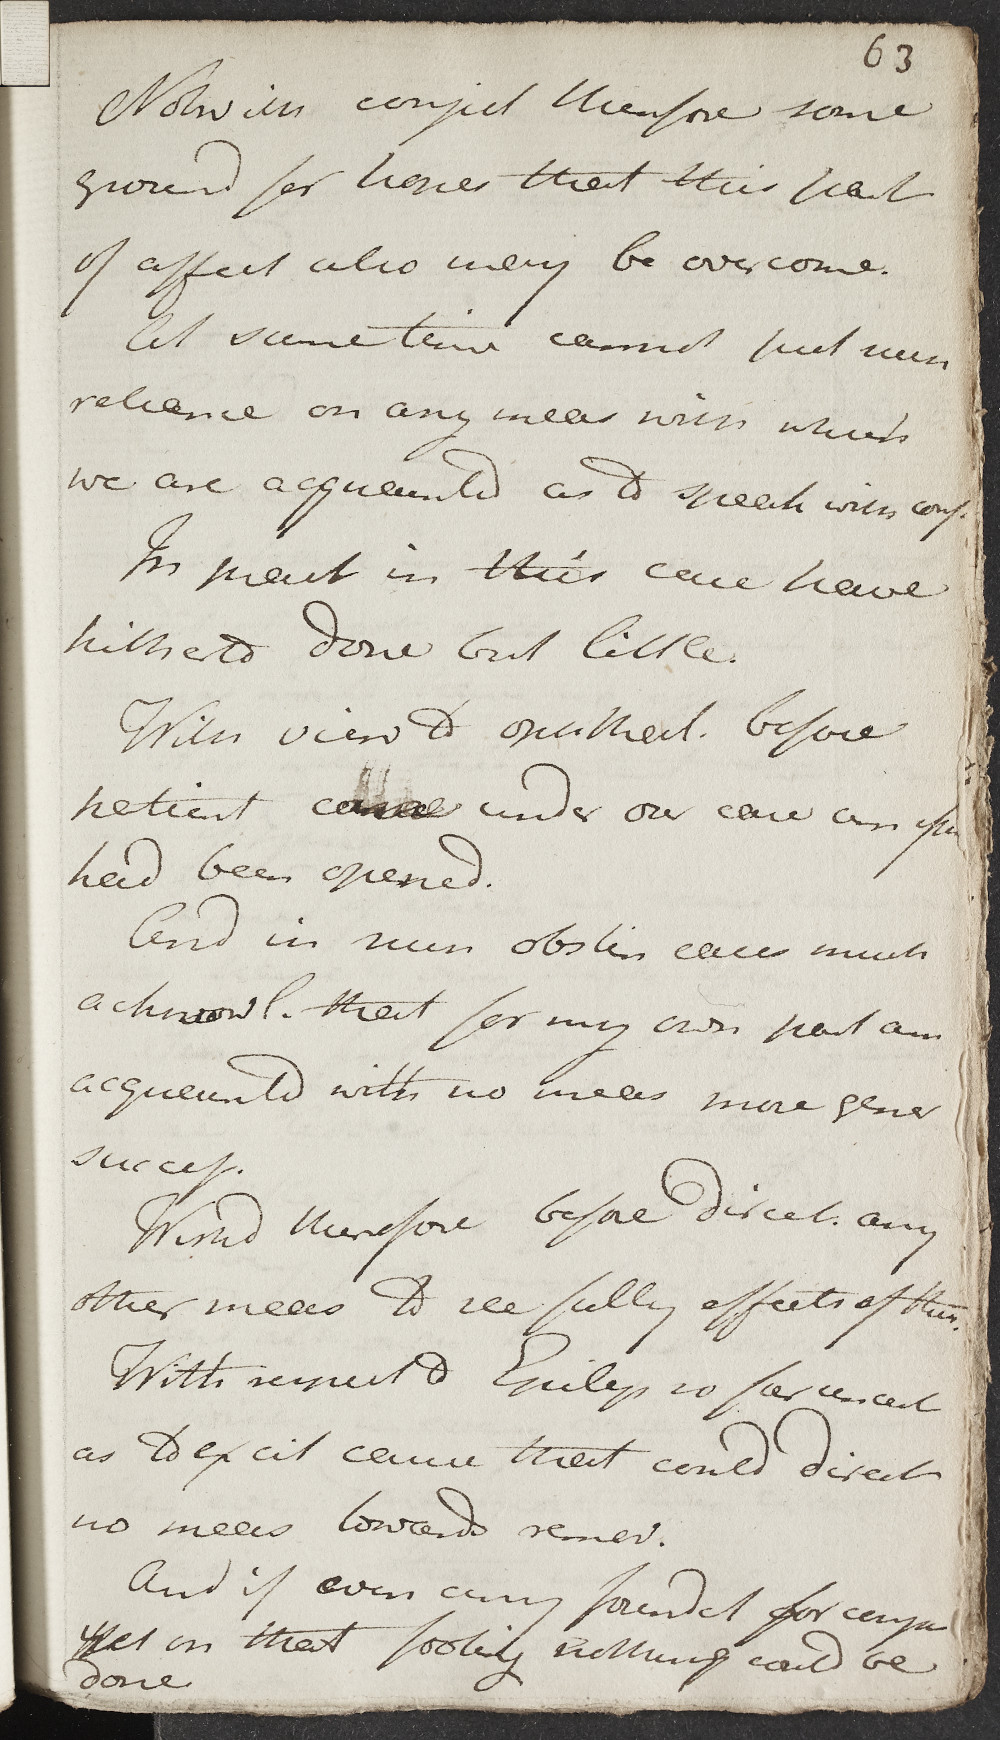 63
Notwith conject therefore some
ground for hopes that this part
of affect also may be overcome.
At same time cannot put much
reliance on any meas with which
we are acquainted as to speak with conf.
In pract in this case have
hitherto done but little.
With view to ophthal. before
patient came under our care an issue
had been opened.
And in such obstin cases much
acknowl. that for my own part am
acquaintd with no meas more gener
success.
Wishd therefore before direct. any
other meas to see fully effects of this.
With respect to Epileps so far uncert
as to excit cause that could direct
no meas towards remov.
And if even any foundat for conject
yet on that footing nothing could be
done